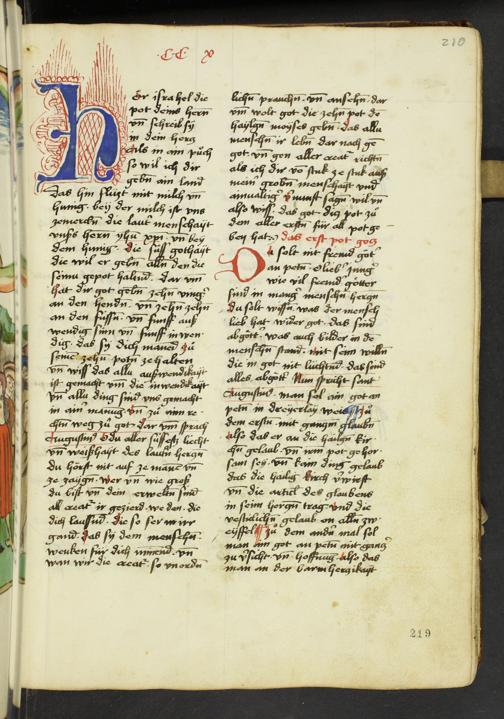 CC x
210
Hör israhel die
pot deins hern
vn̄ schreib sy
in dein herz
als in ain puͦch
so wil ich dir
gebn̄ ain land
das hin fluͤzt mit milch vn̄
honig · bey der milch ist vns
die laut menschayt
vnsß herrn yhū xp̄i vn̄ bey
dem honig · die suͤss gothayt
die wil er gebn̄ alln̄ den die
seinu gepot haltnd · dar vm̄
hat dir got gebn̄ zehn
an den hendn̄ · vn̄ zehn zehn̄
an den fuͤssn̄ · vn̄ fuͤnff auss
wendig sinn vn̄ fuͤnff inwen
dig · das sy dich manend zu
seine zehn̄ potn̄ ze haltn̄
vn̄ wiss das allu ausswendikayt
ist gemacht vm̄ die inwendikayt
vn̄ allu ding sind vm̄ gemacht
in ain manūg dn̄ zu ainr re-
chtn̄ weg zu got · dar vm̄ sprach
Augustin9 O du aller suͤssests liecht
vn̄ weisshayt des lautn̄ herzn̄
du hoͤrst nit auf ze mane vn̄
ze zaygn̄ · wer vn̄ wie gross
du bist vn̄ dein erweltn̄ sind
all creat᷑ ir gezierd
dich lausnd · die so ser an ir
gand · das sy dem menschn̄
wenkn̄ fuͤr dich nimend · vn̄
wan wir die creat᷑ · so vnordn̄
lichn̄ prauchn̄ · vn̄ ansehn̄ · dar
vm̄ wolt got die zehn̄ pot de
haylgn̄ moyses gebn̄ · das allu
menschn̄ ir lebn̄ dar nach ge
got vn̄ gen aller creat᷑ richtn̄
als ich dir vo stuk ze stuk auss
mein᷑ grobn̄ menschayt vnd
ainualtig᷑ v᷑nunft sagn̄ wil vn̄
also wiss · das got dis pot zu
dem aller erstn̄ fuͤr all pot ge
ben hat · das erst pot gotz
Du solt nit fremd goͤt᷑
an petn̄ · O lieb᷑ jung᷑
wie vil fremd᷑ goͤtter
sind in mang᷑ menschn̄ herzn̄
du solt wissn̄ was der mensch
lieb hat wider got · das sind
abgoͤt᷑ · was auch bilder in de
menschn̄ stand · mit seim willn̄
die in got nit luͤchtnd · das sind
alles abgoͤtt᷑ Nun spricht sant
Augustin9 man sol ain got an
petn̄ in dreyerlay weis Zuͦ
dem erstn̄ · mit ganzm̄ glaubn̄
also das er an die hailign̄ kir
chn̄ gelaub · vn̄ irm pot gehor
sam sey · vn̄ kain ding gelaub
das die hailig kirch v᷑wirft
vn̄ die artikl des glaubens
in seim herzn̄ trag · vnd die
vestiklichn̄ gelaub on alln̄ zw-
eyffel Zu dem andn᷑ mal sol
man ain got an petn̄ mit ganz᷑
zu v᷑sicht vn̄ hoffnūg · also das
man an der barmherzikayt
219